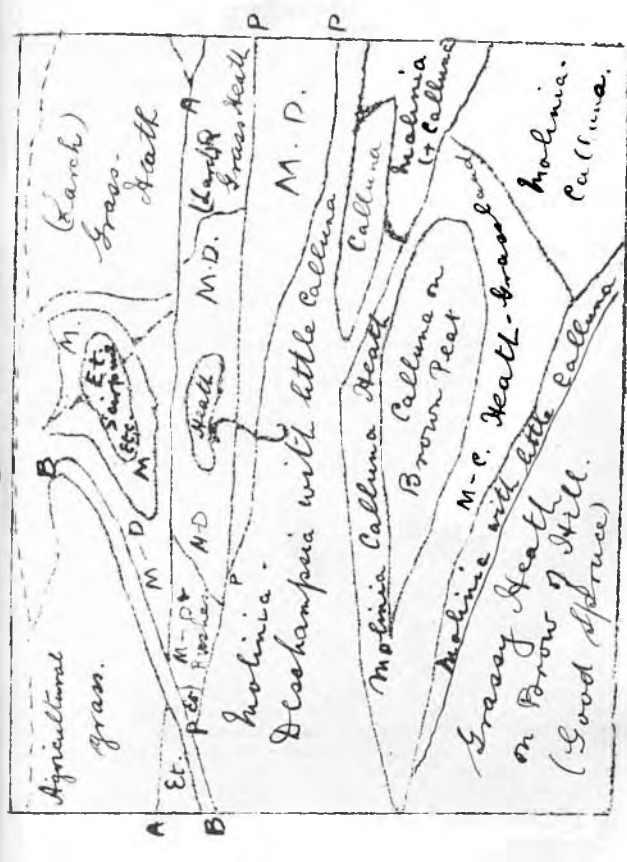 Agricultural
grass.
B
M
(Larch)
Grass-
Heath
Et.
Scirpus
Etc
M
M - D
A
Et.
B
M - D +
Rushes
M-D
Heath
M.D.
(Larch)
Grass Heath
A
B
P
Molinia-
Deschampsia with little Calluna
M. D.
P
P
Molinia Calluna Heath
Calluna
Molinia
(+ Calluna
Calluna on
Brown Peat
M-C. Heath-Grassland
Molinia-
Calluna.
Molinia with little Calluna
Grassy Heath
on Brow of Hill.
(Good Spruce)